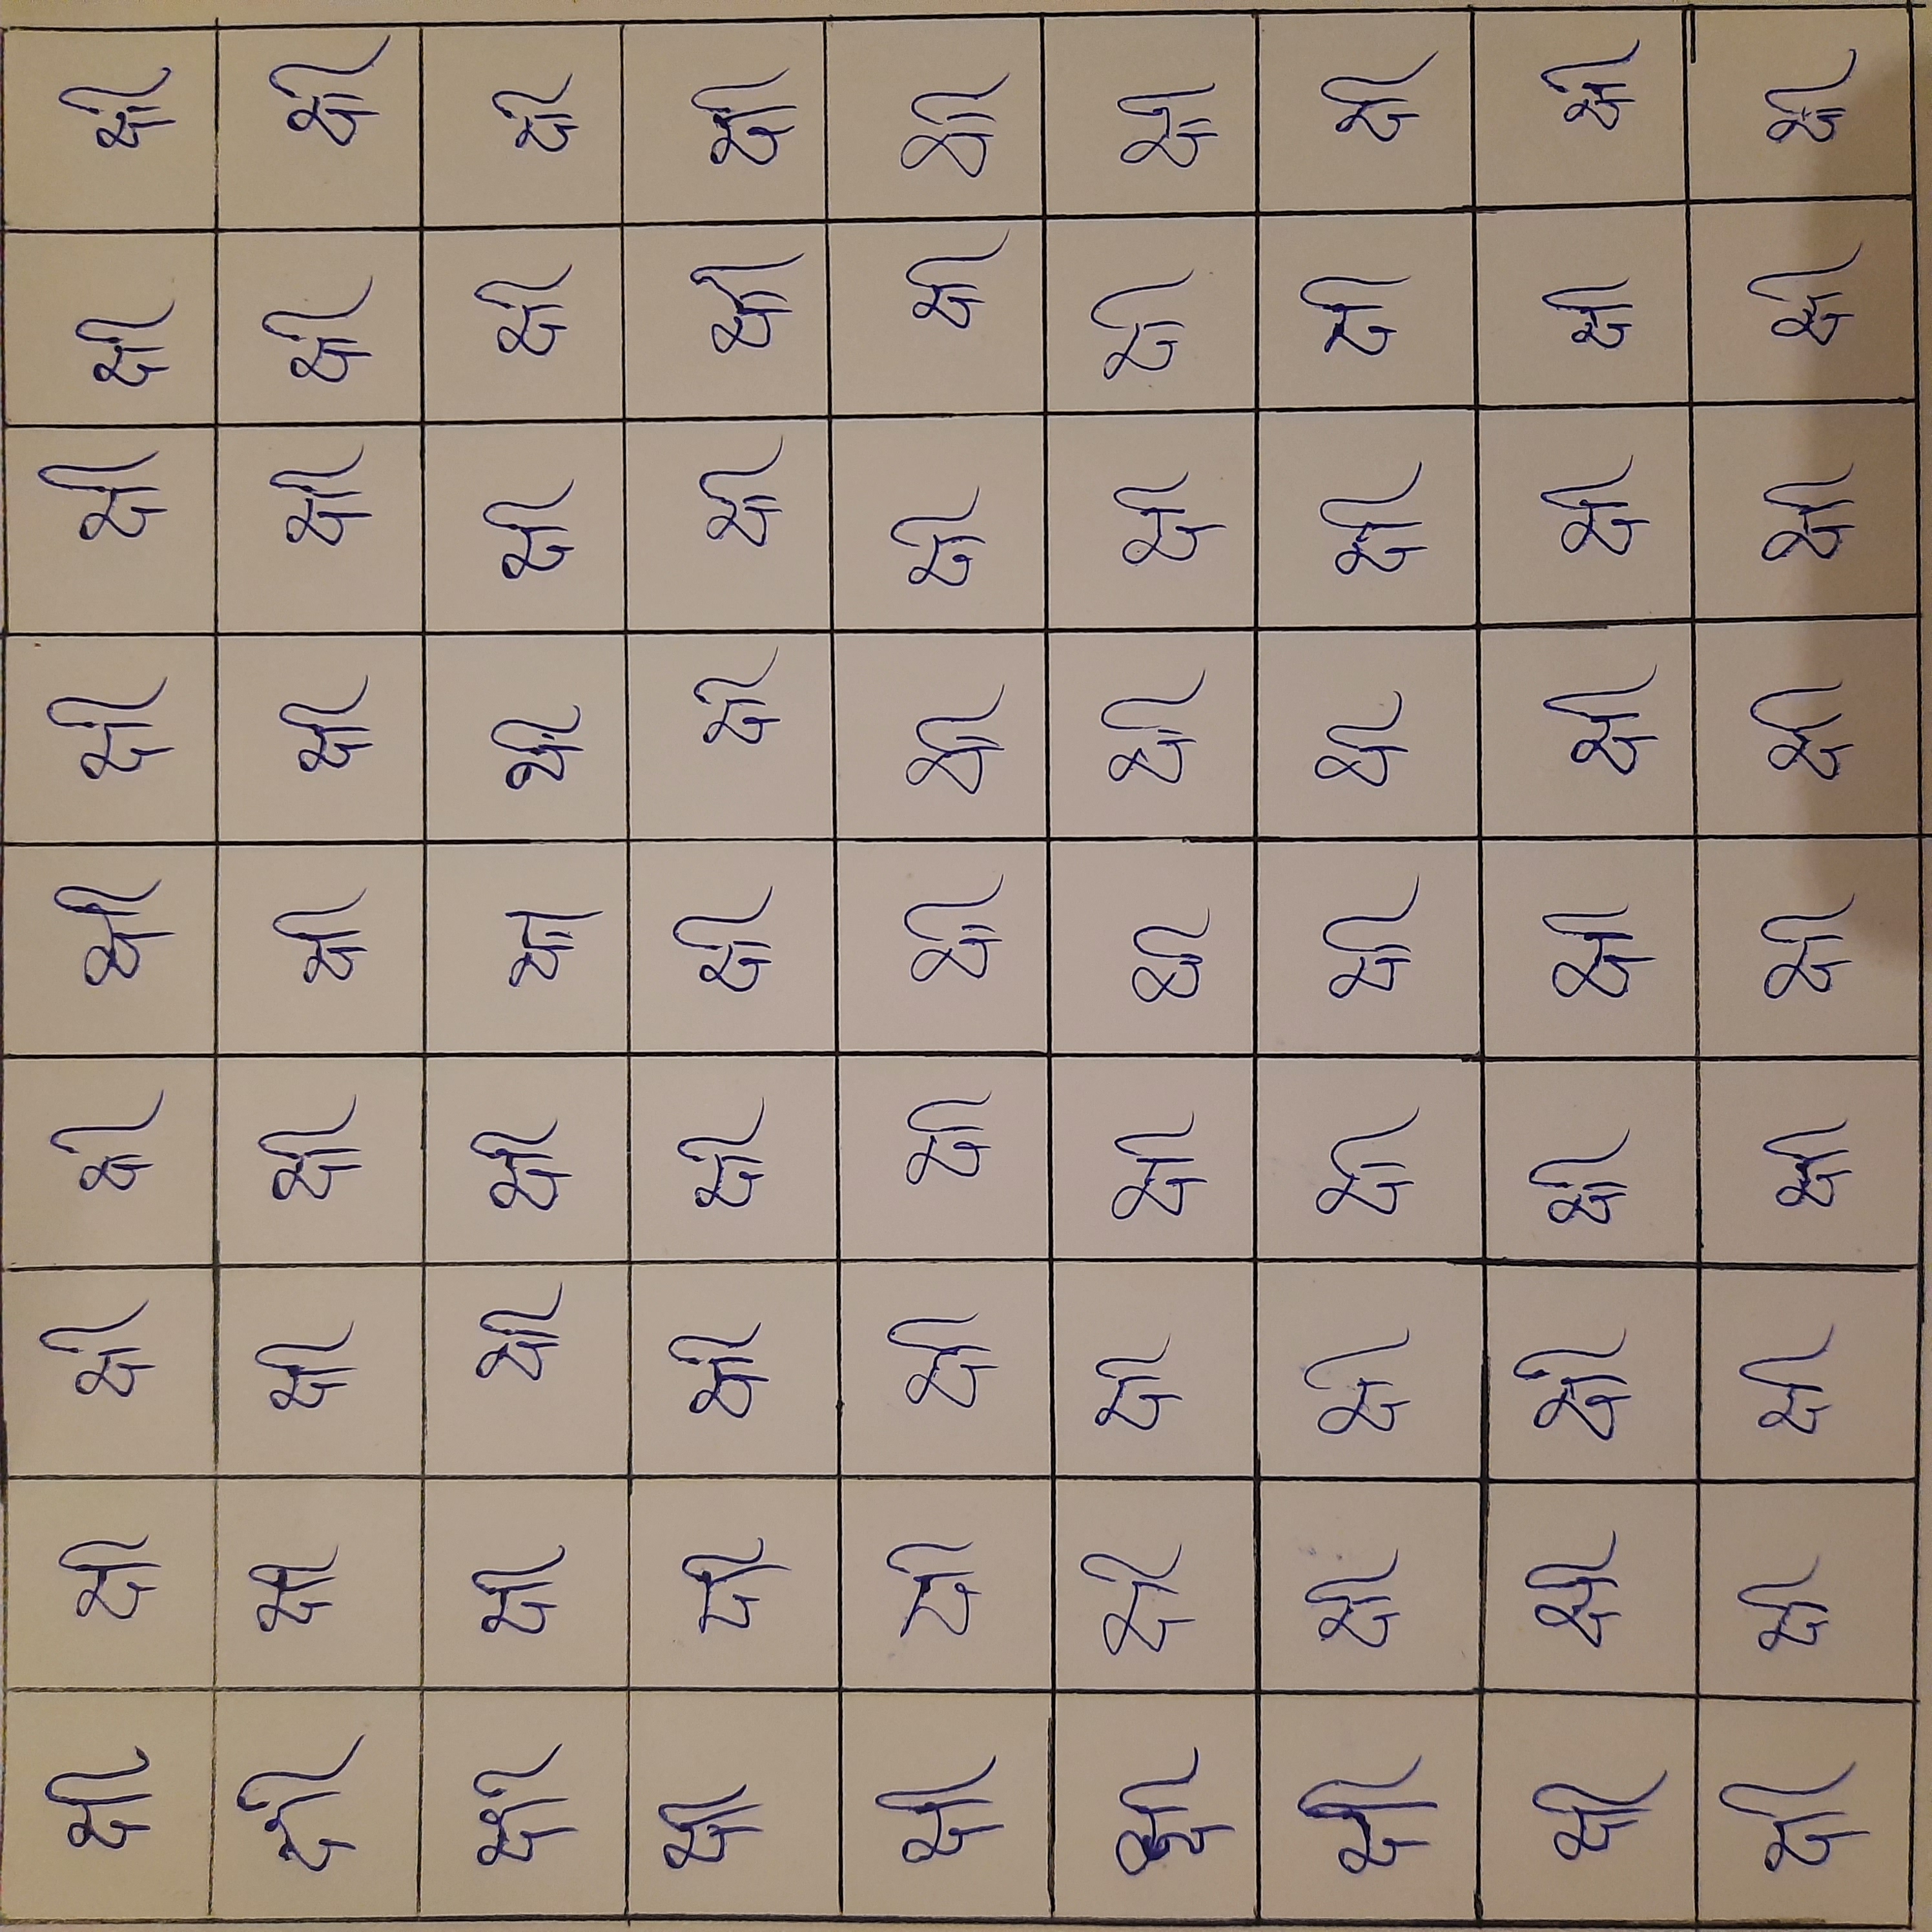 क्षी क्षी क्षी क्षी क्षी क्षी क्षी क्षी क्षी
क्षी क्षी क्षी क्षी क्षी क्षी क्षी क्षी क्षी
क्षी क्षी क्षी क्षी क्षी क्षी क्षी क्षी
क्षी क्षी क्षी क्षी क्षी क्षी क्षी क्षी क्षी
क्षी क्षी क्षी क्षी क्षी क्षी क्षी क्षी क्षी
क्षी क्षी क्षी क्षी क्षी क्षी क्षी क्षी क्षी
क्षी क्षी क्षी क्षी क्षी क्षी क्षी क्षी क्षी
क्षी क्षी क्षी क्षी क्षी क्षी क्षी क्षी क्षी
क्षी क्षी क्षी क्षी क्षी क्षी क्षी क्षी क्षी